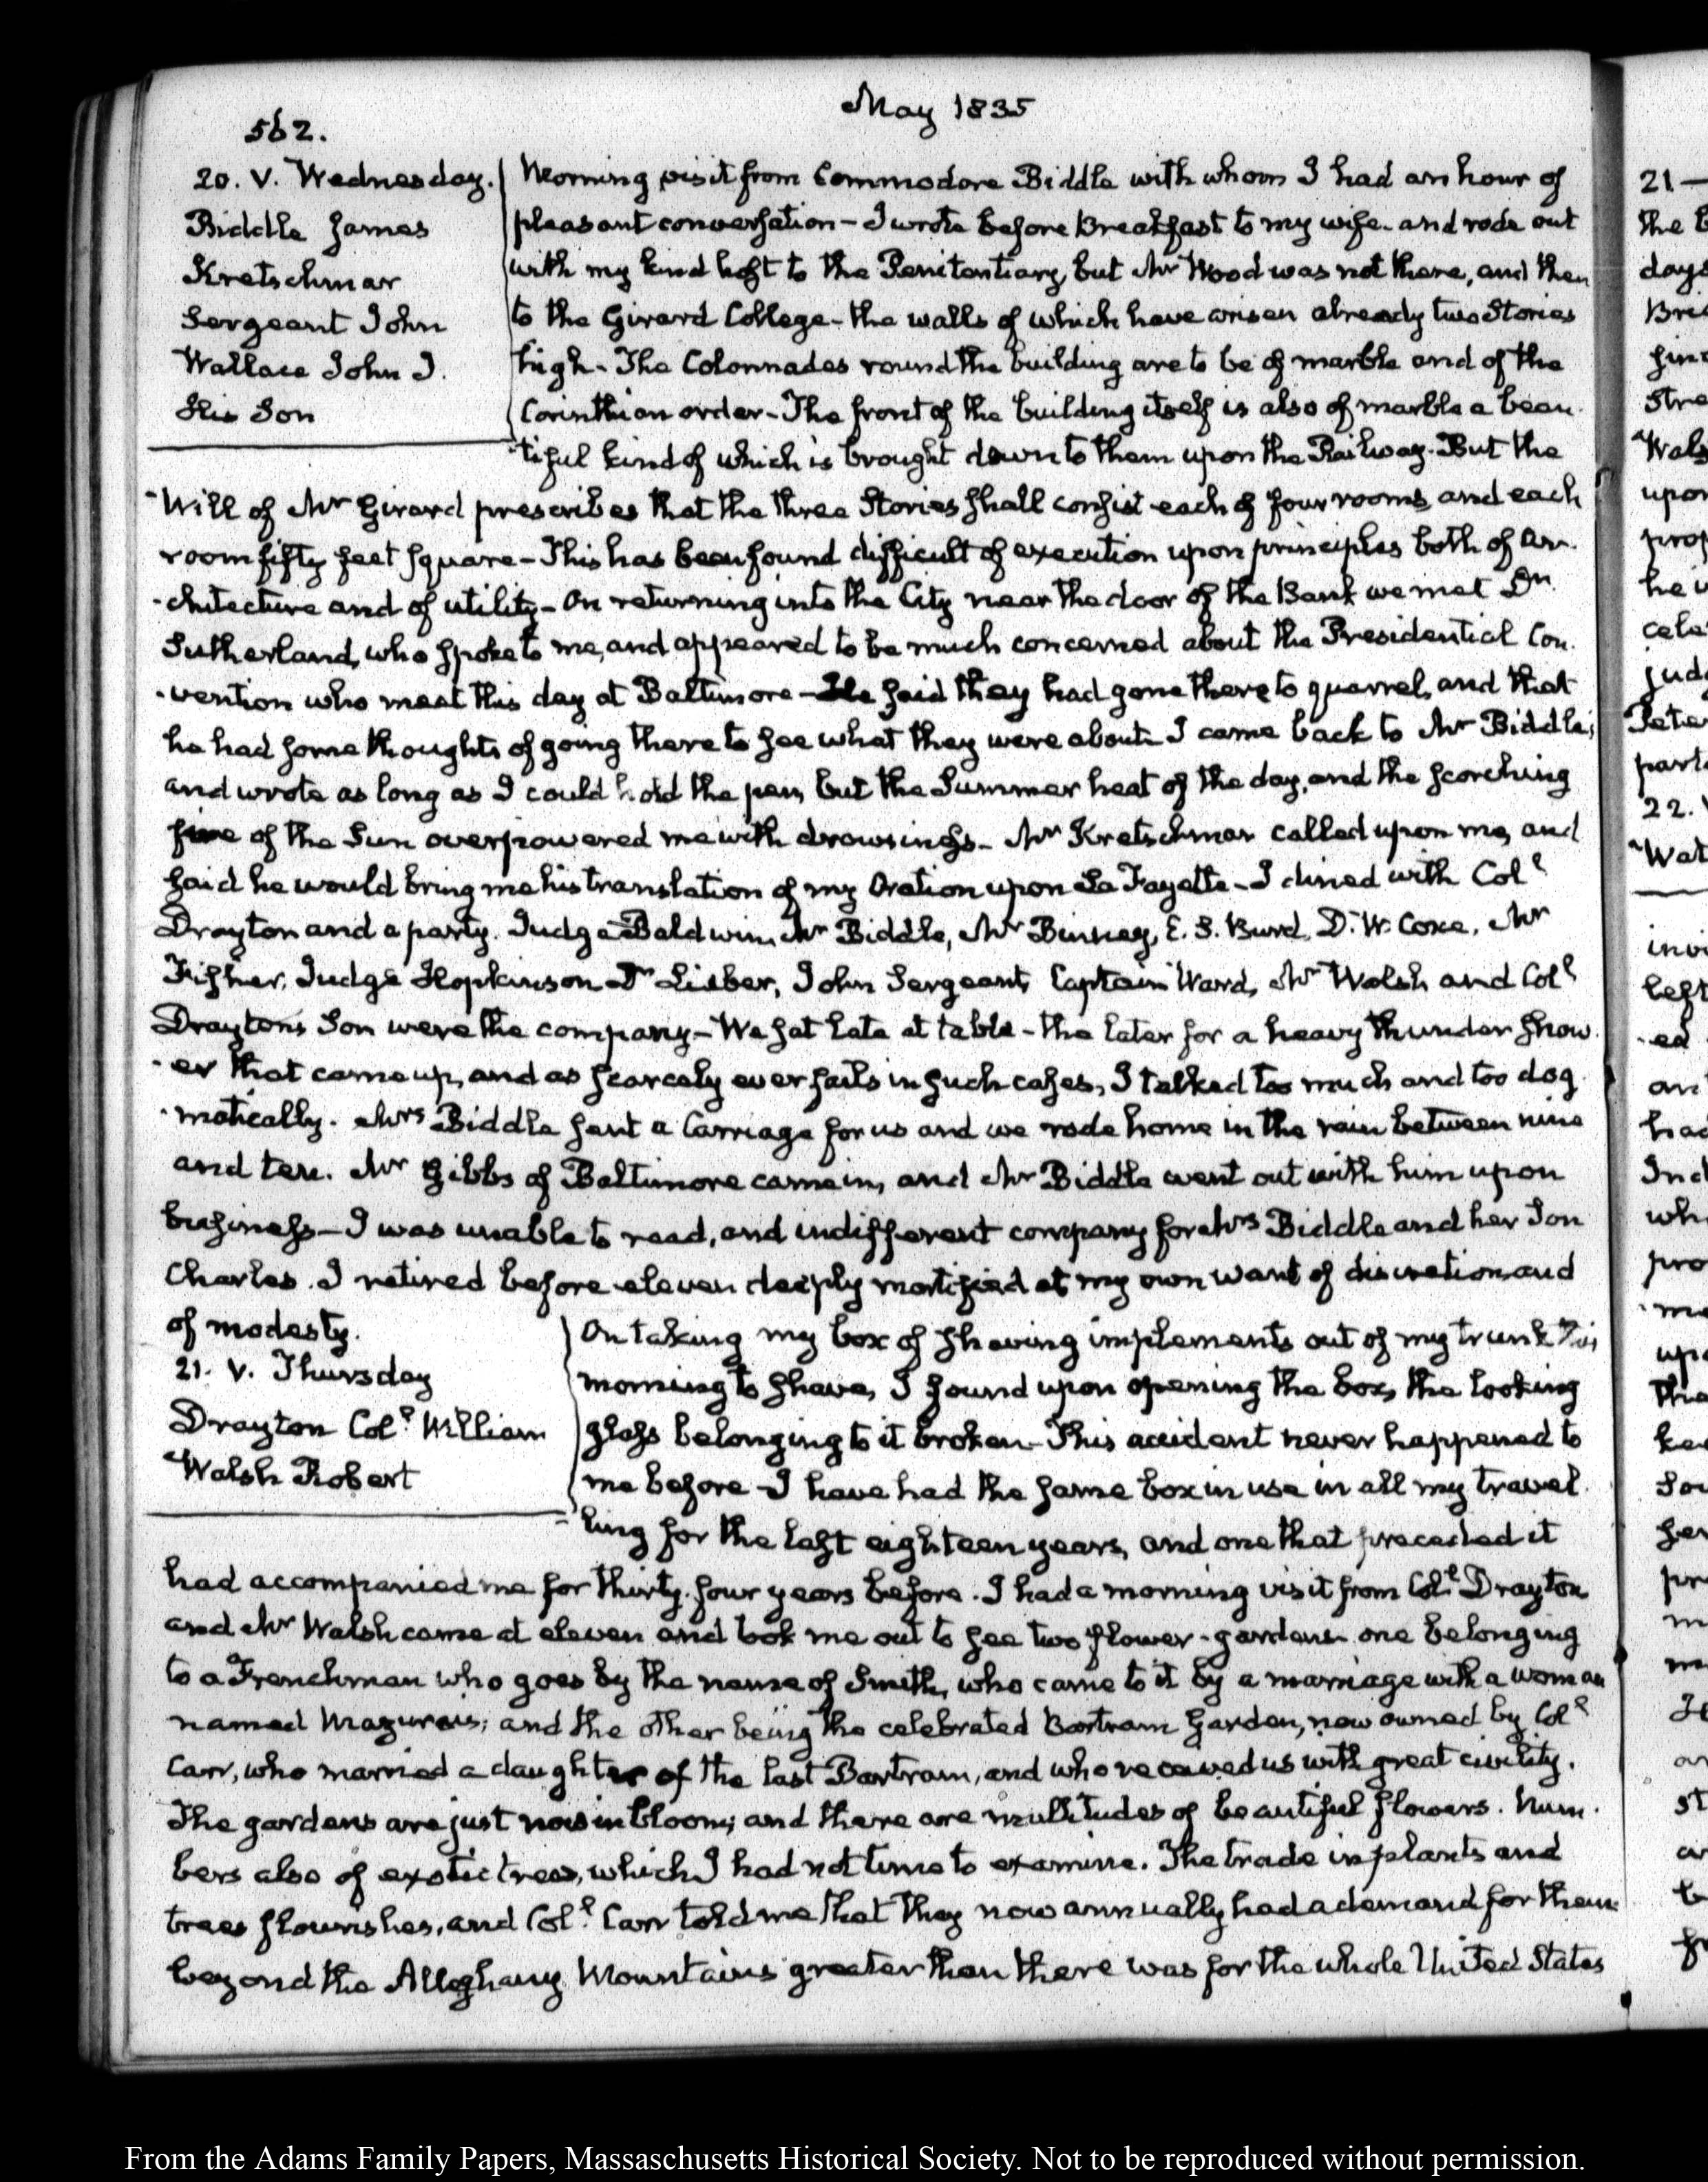 May 1835
562.
20. V. Wednesday.
Biddle James
Kretschmar
Sergeant John
Wallace John J.
His Son
Morning visit from Commodore Biddle with whom I had an hour of
pleasant conversation – I wrote before Breakfast to my wife and rode out
with my kind host to the Penitentiary, but Mr Wood was not there, and then
to the Girard College – the walls of which have arisen already two Stories
high – The Colonnades round the building are to be of marble and of the
Corinthian order – The front of the building itself is also of marble a beau-
-tiful kind of which is brought down to them upon the Railway. But the
Will of Mr Girard prescribes that the three Stories shall consist each of four rooms, and each
room fifty feet square – This has been found difficult of execution upon principles both of Ar-
-chitecture and of utility – On returning into the City near the door of the Bank we met Dr
Sutherland, who spoke to me, and appeared to be much concerned about the Presidential Con-
-vention who meet this day at Baltimore – He said they had gone there to quarrel, and that
he had some thoughts of going there to see what they were about. I came back to Mr Biddle's
and wrote as long as I could hold the pen, but the Summer heat of the day, and the scorching
fire of the Sun overpowered me with drowsiness – Mr Kretschmar called upon me, and
said he would bring me his translation of my Oration upon La Fayette – I dined with Coll
Drayton and a party. Judge Baldwin, Mr Biddle, Mr Binney, E. S. Burd, D. W. Coxe, Mr
Fisher, Judge Hopkinson Dr Lieber, John Sergeant, Captain Ward, Mr Walsh and Coll
Drayton's Son were the company – We sat late at table – the later for a heavy thunder show-
-er that came up, and as scarcely ever fails in such cases, I talked too much and too dog-
-matically. Mrs Biddle sent a Carriage for us and we rode home in the rain between nine
and ten. Mr Gibbs of Baltimore came in, and Mr Biddle went out with him upon
business – I was unable to read, and indifferent company for Mrs Biddle and her Son
Charles. I retired before eleven deeply mortified at my own want of discretion and
of modesty.
21. V. Thursday
Drayton Coll William
Walsh Robert
On taking my box of shaving implements out of my trunk this
morning to shave, I found upon opening the box, the looking
glass belonging to it broken – This accident never happened to
me before – I have had the same box in use in all my travel-
-ling for the last eighteen years, and one that preceded it
had accompanied me for thirty-four years before. I had a morning visit from Coll Drayton
and Mr Walsh came at eleven and took me out to see two flower-gardens one belonging
to a Frenchman who goes by the name of Smith, who came to it by a marriage with a woman
named Mazurais; and the other being the celebrated Bartram Garden, now owned by Coll
Carr, who married a daughter of the last Bartram, and who received us with great civility.
The gardens are just now in bloom; and there are multitudes of beautiful flowers. Num-
bers also of exotic trees, which I had not time to examine. The trade in plants and
trees flourishes, and Coll Carr told me that they now annually had a demand for them
beyond the Alleghany Mountains greater than there was for the whole United States
From the Adams Family Papers, Massachusetts Historical Society. Not to be reproduced without permission.